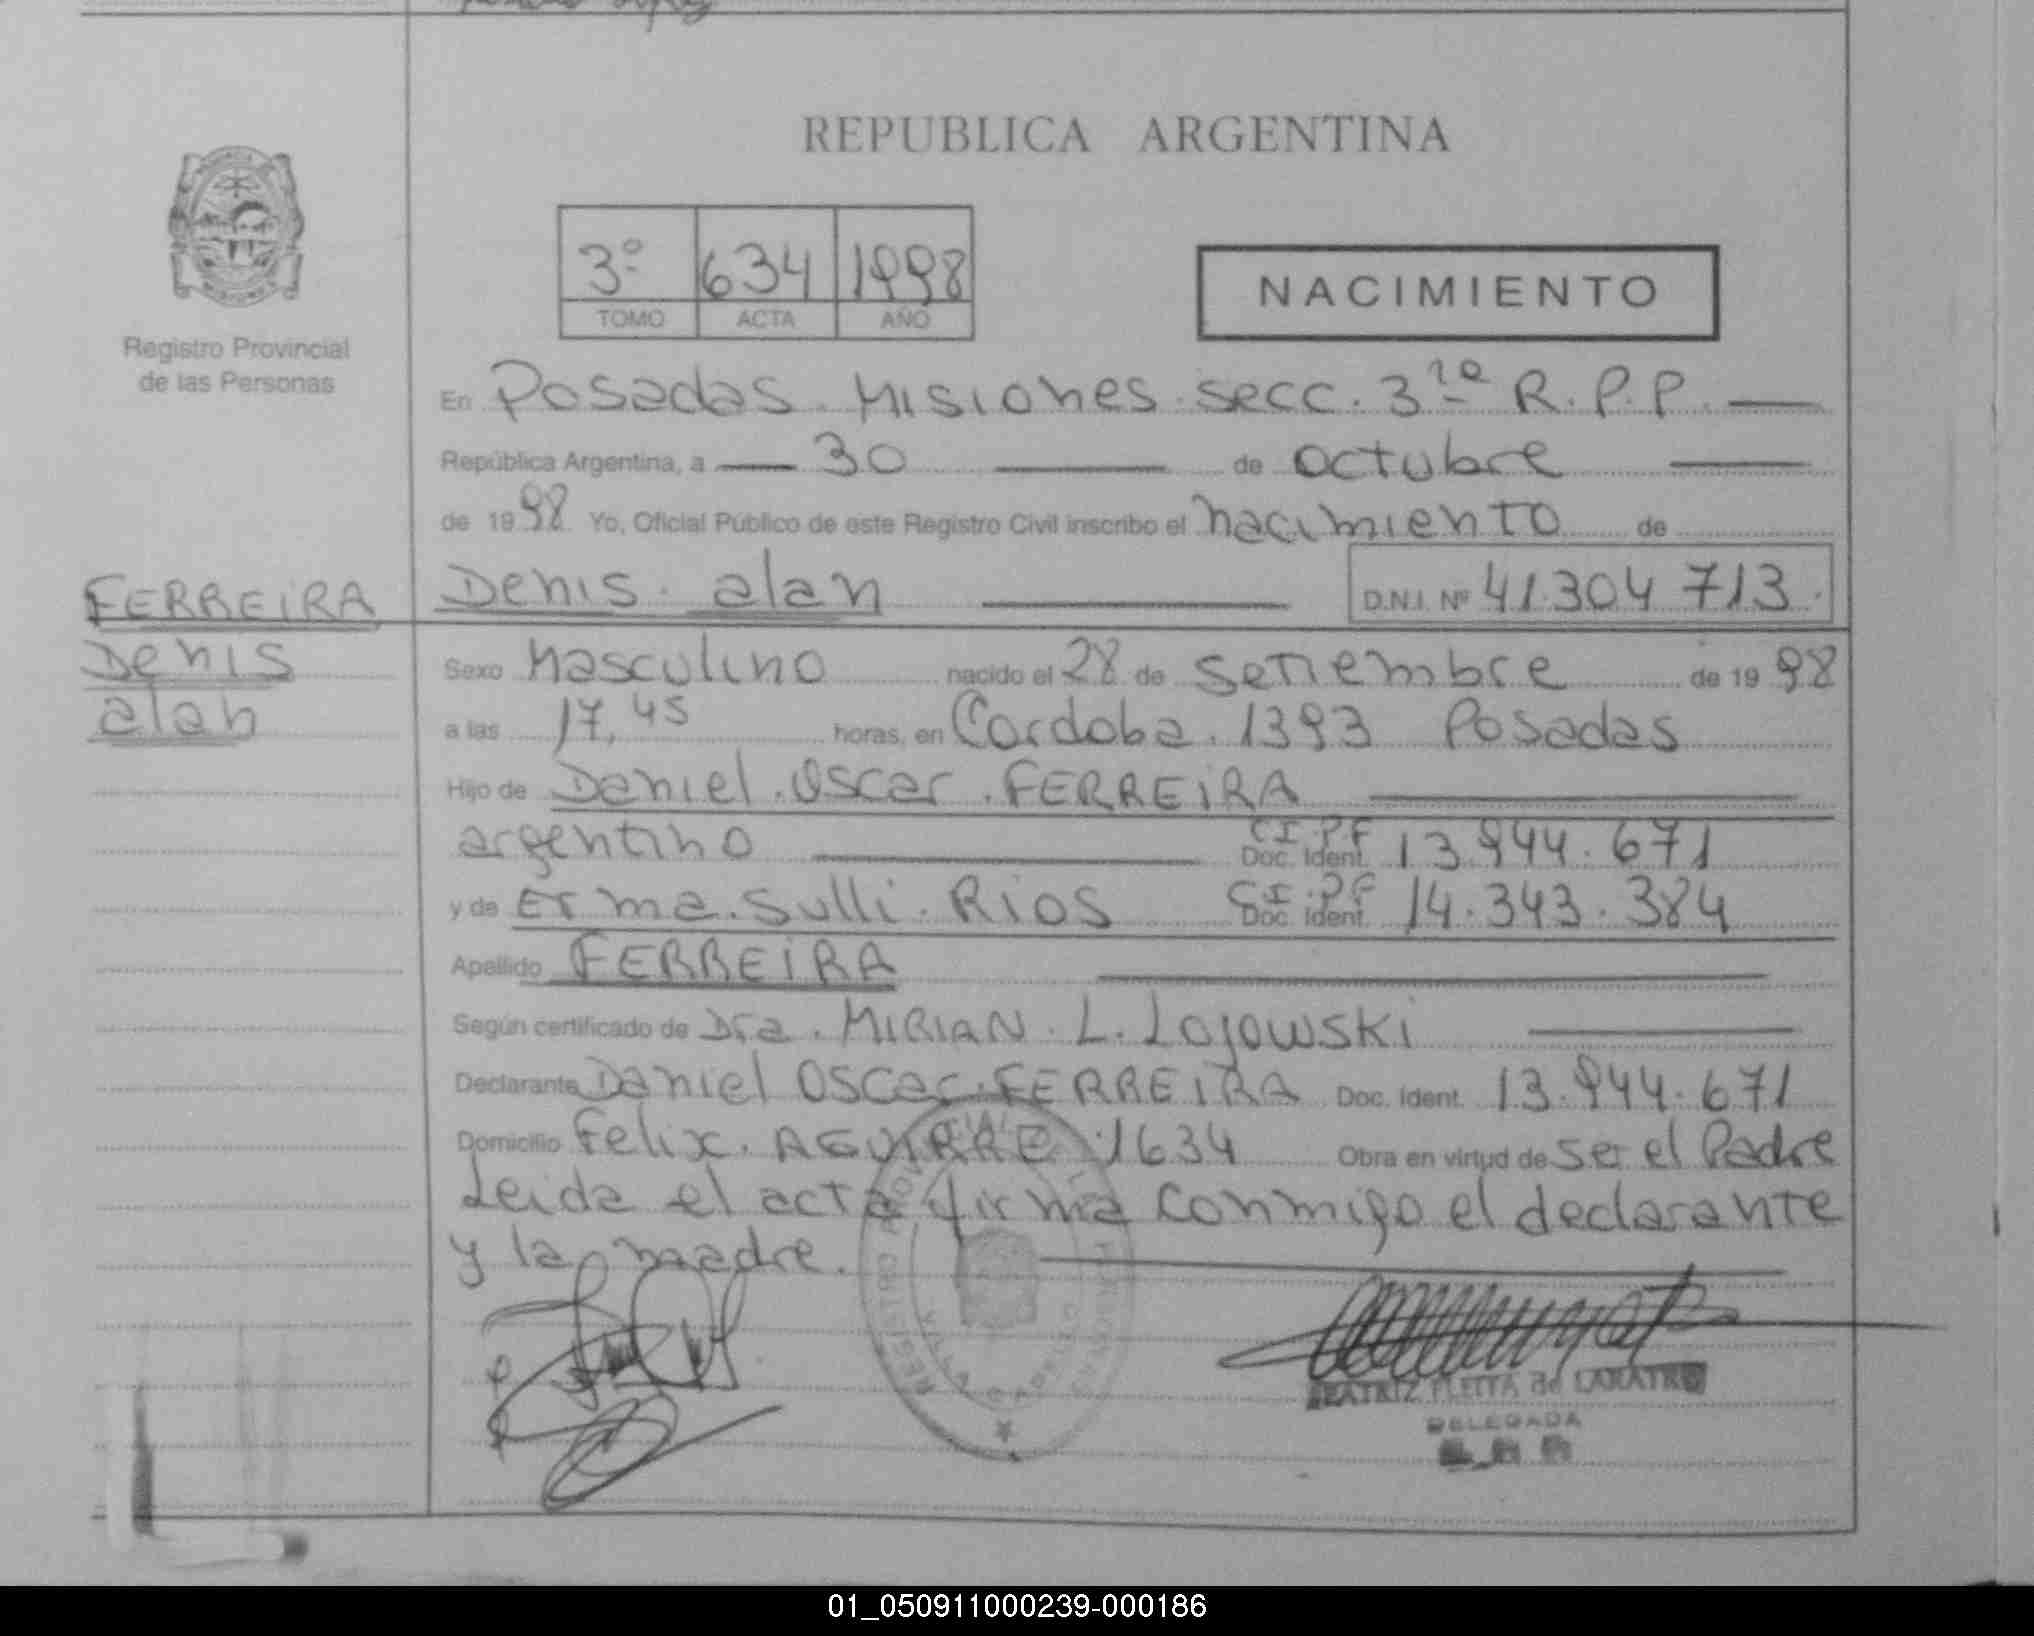 REPUBLICA ARGENTINA
3º 634 1998
TOMO ACTA AÑO
NACIMIENTO
Registro Provincial
de las Personas
En Posadas. Misiones. secc. 3ra R.P.P.
República Argentina, a 30 de octubre
de 1998 Yo, Oficial Público de este Registro Civil inscribo el nacimiento de
FERREIRA
Denis
alan
Denis. alan D.N.I. Nº 41.304 713.
Sexo Masculino nacido el 28 de setiembre de 1998
a las 17,45 horas, en Cordoba. 1393 Posadas
Hijo de Daniel. Oscar. FERREIRA
argentino C.I.P.F Doc. Ident. 13.944.671
y de Erma. Sulli. Rios C.I.P.F Doc. Ident. 14.343.384
Apellido FERREIRA
Según certificado de Dra. MIRIAN. L. LOJOWSKI
Declarante Daniel Oscar. FERREIRA Doc. Ident. 13.944.671
Domicilio Felix. AGUIRRE 1634 Obra en virtud de ser el Padre
Leida el acta firma conmigo el declarante
y la madre.
BEATRIZ de
DELEGADA
01_050911000239-000186